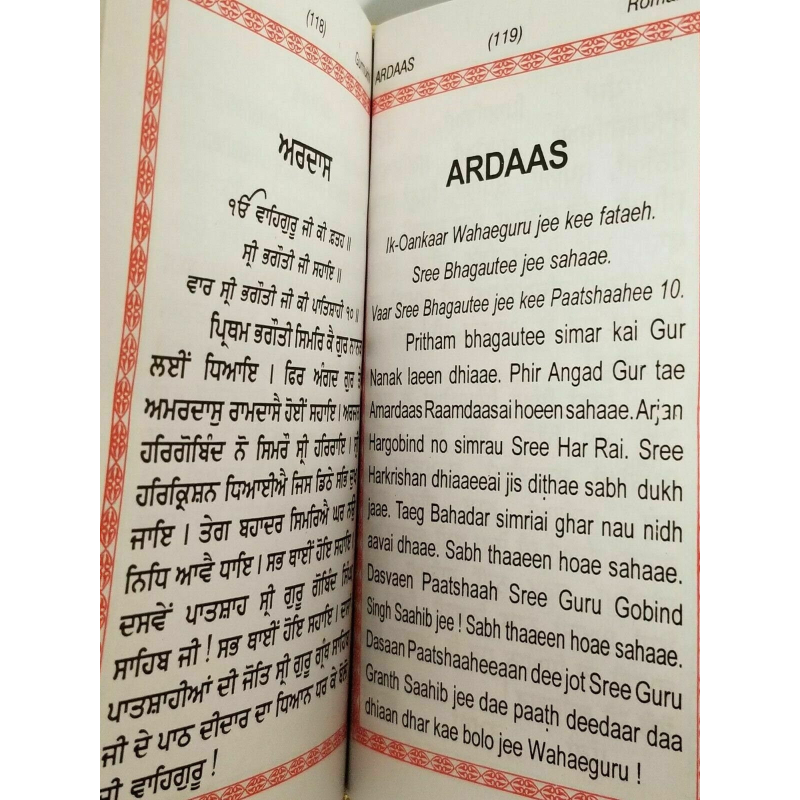 (118)
ਅਰਦਾਸ
ੴ ਵਾਹਿਗੁਰੂ ਜੀ ਕੀ ਫ਼ਤਹ ॥
ਸ੍ਰੀ ਭਗੌਤੀ ਜੀ ਸਹਾਇ ॥
ਵਾਰ ਸ੍ਰੀ ਭਗੌਤੀ ਜੀ ਕੀ ਪਾਤਿਸ਼ਾਹੀ ੧੦ ॥
ਪ੍ਰਿਥਮ ਭਗੌਤੀ ਸਿਮਰਿ ਕੈ ਗੁਰ ਨਾਨਕ
ਲਈਂ ਧਿਆਇ । ਫਿਰ ਅੰਗਦ ਗੁਰ
ਅਮਰਦਾਸੁ ਰਾਮਦਾਸੈ ਹੋਈਂ ਸਹਾਇ । ਅਰਜਨ
ਹਰਿਗੋਬਿੰਦ ਨੋ ਸਿਮਰੌ ਸ੍ਰੀ ਹਰਿਰਾਇ ।
ਹਰਿਕ੍ਰਿਸ਼ਨ ਧਿਆਈਐ ਜਿਸ ਡਿਠੇ ਸਭਿ ਦੁਖ
ਜਾਇ । ਤੇਗ ਬਹਾਦਰ ਸਿਮਰਿਐ ਘਰ ਨਉ
ਨਿਧਿ ਆਵੈ ਧਾਇ । ਸਭ ਥਾਈਂ ਹੋਇ ਸਹਾਇ ।
ਦਸਵੇਂ ਪਾਤਸ਼ਾਹ ਸ੍ਰੀ ਗੁਰੂ ਗੋਬਿੰਦ ਸਿੰਘ
ਸਾਹਿਬ ਜੀ ! ਸਭ ਥਾਈਂ ਹੋਇ ਸਹਾਇ । ਦਸਾਂ
ਪਾਤਸ਼ਾਹੀਆਂ ਦੀ ਜੋਤਿ ਸ੍ਰੀ ਗੁਰੂ ਗ੍ਰੰਥ ਸਾਹਿਬ
ਜੀ ਦੇ ਪਾਠ ਦੀਦਾਰ ਦਾ ਧਿਆਨ ਧਰ ਕੇ ਬੋਲੋ
ਜੀ ਵਾਹਿਗੁਰੂ !
ARDAAS (119)
ARDAAS
Ik-Oankaar Wahaeguru jee kee fataeh.
Sree Bhagautee jee sahaae.
Vaar Sree Bhagautee jee kee Paatshaahee 10.
Pritham bhagautee simar kai Gur
Nanak laeen dhiaae. Phir Angad Gur tae
Amardaas Raamdaasai hoeen sahaae. Arjan
Hargobind no simrau Sree Har Rai. Sree
Harkrishan dhiaaeeai jis diṭhae sabh dukh
jaae. Taeg Bahadar simriai ghar nau nidh
aavai dhaae. Sabh thaaeen hoae sahaae.
Dasvaen Paatshaah Sree Guru Gobind
Singh Saahib jee ! Sabh thaaeen hoae sahaae.
Dasaan Paatshaaheeaan dee jot Sree Guru
Granth Saahib jee dae paaṭh deedaar daa
dhiaan dhar kae bolo jee Wahaeguru !